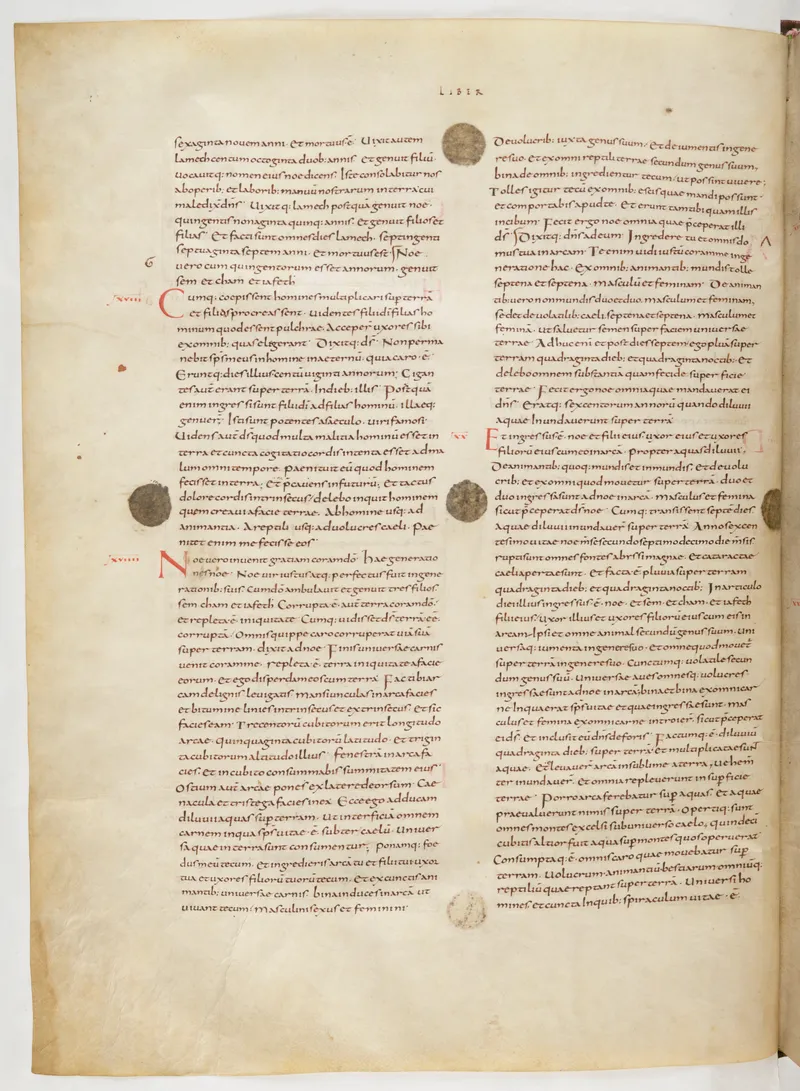 LIBER
sexaginta nouem anni · Et mortuus ē · Uixit autem
lamech centum octoginta duob; annis · Et genuit filiū ·
Uocauitq; nomen eius noe dicens · Iste consolabitur nos
aboperib; et laborib; manuū nostrarum interra cui
maledixit dn̄s · Uixitq; lamech postquā genuit noe ·
quingentos nonaginta quinq; annis · Et genuit filios et
filias · Et facti sunt omnes dies lamech · septingenti
septuaginta septem anni · Et mortuus est · Noe
6
uero cum quingentorum esset annorum · genuit
sem et cham et iafeth
xviii Cumq; coepissent homines multiplicari sup terrā
et filias procreassent · Uidentes filii dī filias ho
minum quod essent pulchrae · Acceperunt uxores sibi
exomnib; quas eligerant · Dixitq; dī · Non perma
nebit sps meus in homine in aeternū · quia caro ē ·
Eruntq; dies illius centū uiginti annorum; Gigan
tes aut̄ erant super terrā · In dieb; illis · Postquā
enim ingressi sunt filii dī ad filias hominū · illaeq;
genuer̄ · Isti sunt potentes asaeculo · uiri famosi ·
Uidens aut̄ dī quod multa malitia hominū esset in
terra et cuncta cogitatio cordis intenta esset ad ma
lum omni tempore · paenituit eū quod hominem
fecisset in terra · Et p̄cauens infuturū · Et tactus
dolore cordis intrinsecus · delebo inquit hominem
quem creaui afacie terrae · Ab homine usq; ad
animantia · A reptili usq; ad uolucres caeli · Pae
nitet enim me fecisse eos
xviiii Noe uero inuenit gratiam coram dnō · Hae generatio
nes noe · Noe uir iustus atq; perfectus fuit in gene
rationib; suis · Cum dō ambulauit et genuit tres filios
sem cham et iafeth · Corrupta ē aut̄ terra coram dō ·
Et repleta ē iniquitate · Cumq; uidisset dī terrā eē ·
corruptā · Omnis quippe caro corruperat uiā suā
super terram · dixit ad noe · Finis uniuersae carnis
uenit coram me · repleta ē · terra iniquitate afacie
eorum · Et ego disperdam eos cum terra · Fac tibi ar
cam de lignis leuigatis · Mansiunculas in arca facies
et bitumine linies intrinsecus et extrinsecus · Et sic
facies eam · Trecentorū cubitorum erit longitudo
arcae · quinquaginta cubitorū latitudo · Et trigin
ta cubitorum altitudo illius · Fenestrā in arca fa
cies · Et in cubito consummabis summitatem eius ·
Ostium aut̄ arcae pones ex latere deorsum · Cae
nacula et tristega facies in ea · Ecce ego adducam
diluuii aquas sup terram · Ut interficiā omnem
carnem in qua sps uitae ē · subter caelū · Uniuer
sa quae in terra sunt consumentur; ponamq; foe
dus meū tecum · Et ingredieris arcā tu et filii tui uxor
tua et uxores filiorū tuorū tecum · Et ex cunctis ani
mantib; uniuersae carnis · bina induces in arcā ut
uiuant tecum · Masculini sexus et feminini
De uolucrib; iuxta genus suum · Et de iumentis in gene
re suo · Et ex omni reptili terrae secundum genus suum,
bina de omnib; ingredientur tecum · ut possint uiuere;
Tolles igitur tecū ex omnib; escis quae mandi possunt ·
et comportabis apud te · Et erunt tam tibi quam illis
in cibum · Fecit ergo noe omnia quae p̄ceperat illi
dī · Dixitq; dn̄s ad eum · Ingredere tu et omnis do
mus tua in arcam · Te enim uidi iustū coram me in ge
neratione hac · Ex omnib; animantib; mundis tolle
septena et septena · masculū et feminam · De animan
tib; uero non mundis duo et duo · masculum et feminam,
sed et de uolatilib; caeli · septena et septena · masculum et
feminā · ut saluetur semen super faciem uniuersae
terrae · Adhuc enī et post dies septem ego pluā super
terram quadraginta dieb; et quadraginta noctib; Et
delebo omnem substantiā quam feci de superficie
terrae · Fecit ergo noe omnia quae mandauerat ei
dn̄s · Eratq; sexcentorum annorū quando diluuii
aquae inundauerunt super terrā
xx Et ingressus ē · noe et filii eius uxor eius et uxores
filiorū eius cum eo in arcā · propter aquas diluuii,
De animantib; quoq; mundis et inmundis · et de uolu
crib; et ex omni quod mouetur super terrā · duo et
duo ingressa sunt ad noe in arcā · masculus et femina
sicut p̄ceperat dī noe · Cumq; transissent septē dies
Aquae diluuii inundauer̄ super terrā · Anno sexcen
tesimo uitae noe mense secundo septimo decimo die mensis
rupti sunt omnes fontes abyssi magnae · Et cataractae
caeli apertae sunt · Et facta ē pluuia super terram
quadraginta dieb; et quadraginta noctib; In articulo
diei illius ingressus ē · noe · et sem · et cham · et iafeth
filii eius · Uxor illius et uxores filiorū eius cum eis in
arcam · Ipsi et omne animal secundū genus suum · uni
uersaq; iumenta in genere suo · Et omne quod mouet̄
super terrā in genere suo · Cunctumq; uolatile secun
dum genus suū · Uniuersae aues omnesq; uolucres
ingressae sunt ad noe in arcā; bina et bina ex omni car
ne in qua erat sps uitae · et quae ingressa sunt · mas
culus et femina ex omni carne · introier̄ · sicut p̄ceperat
ei dī · Et inclusit eū dn̄s deforis · Factumq; ē · diluuiū
quadraginta dieb; super terrā · Et multiplicatae sunt
aquae · Et leuauer̄ arcā in sublime a terra, uehem
ter inundauer̄ · et omnia repleuerunt in supficie
terrae · Porro arca ferebatur sup aquas · Et aquae
praeualuerunt nimis super terrā · Opertiq; sunt
omnes montes excelsi sub uniuerso caelo, quindeci
cubitis altior fuit aqua sup montes quos operuerat
Consumptaq; ē · omnis caro quae mouebatur sup
terram · Uolucrum · animantiū bestiarum · omniūq;
reptiliū quae reptant super terrā · Uniuersi ho
mines, et cuncta in quib; spiraculum uitae · ē ·